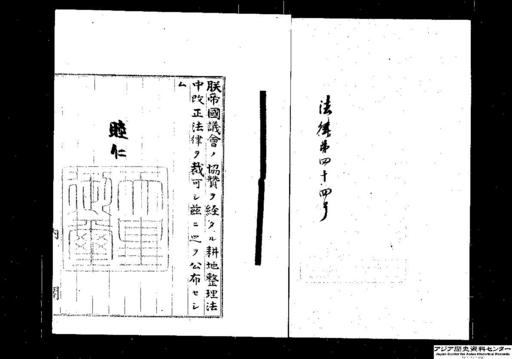 法律第四十四号
朕帝國議會ノ協賛ヲ経タル耕地整理法
中改正法律ヲ裁可シ茲ニ之ヲ公布セシ
ム
睦仁
内閣
アジア歴史資料センター
Japan Center for Asian Historical Records